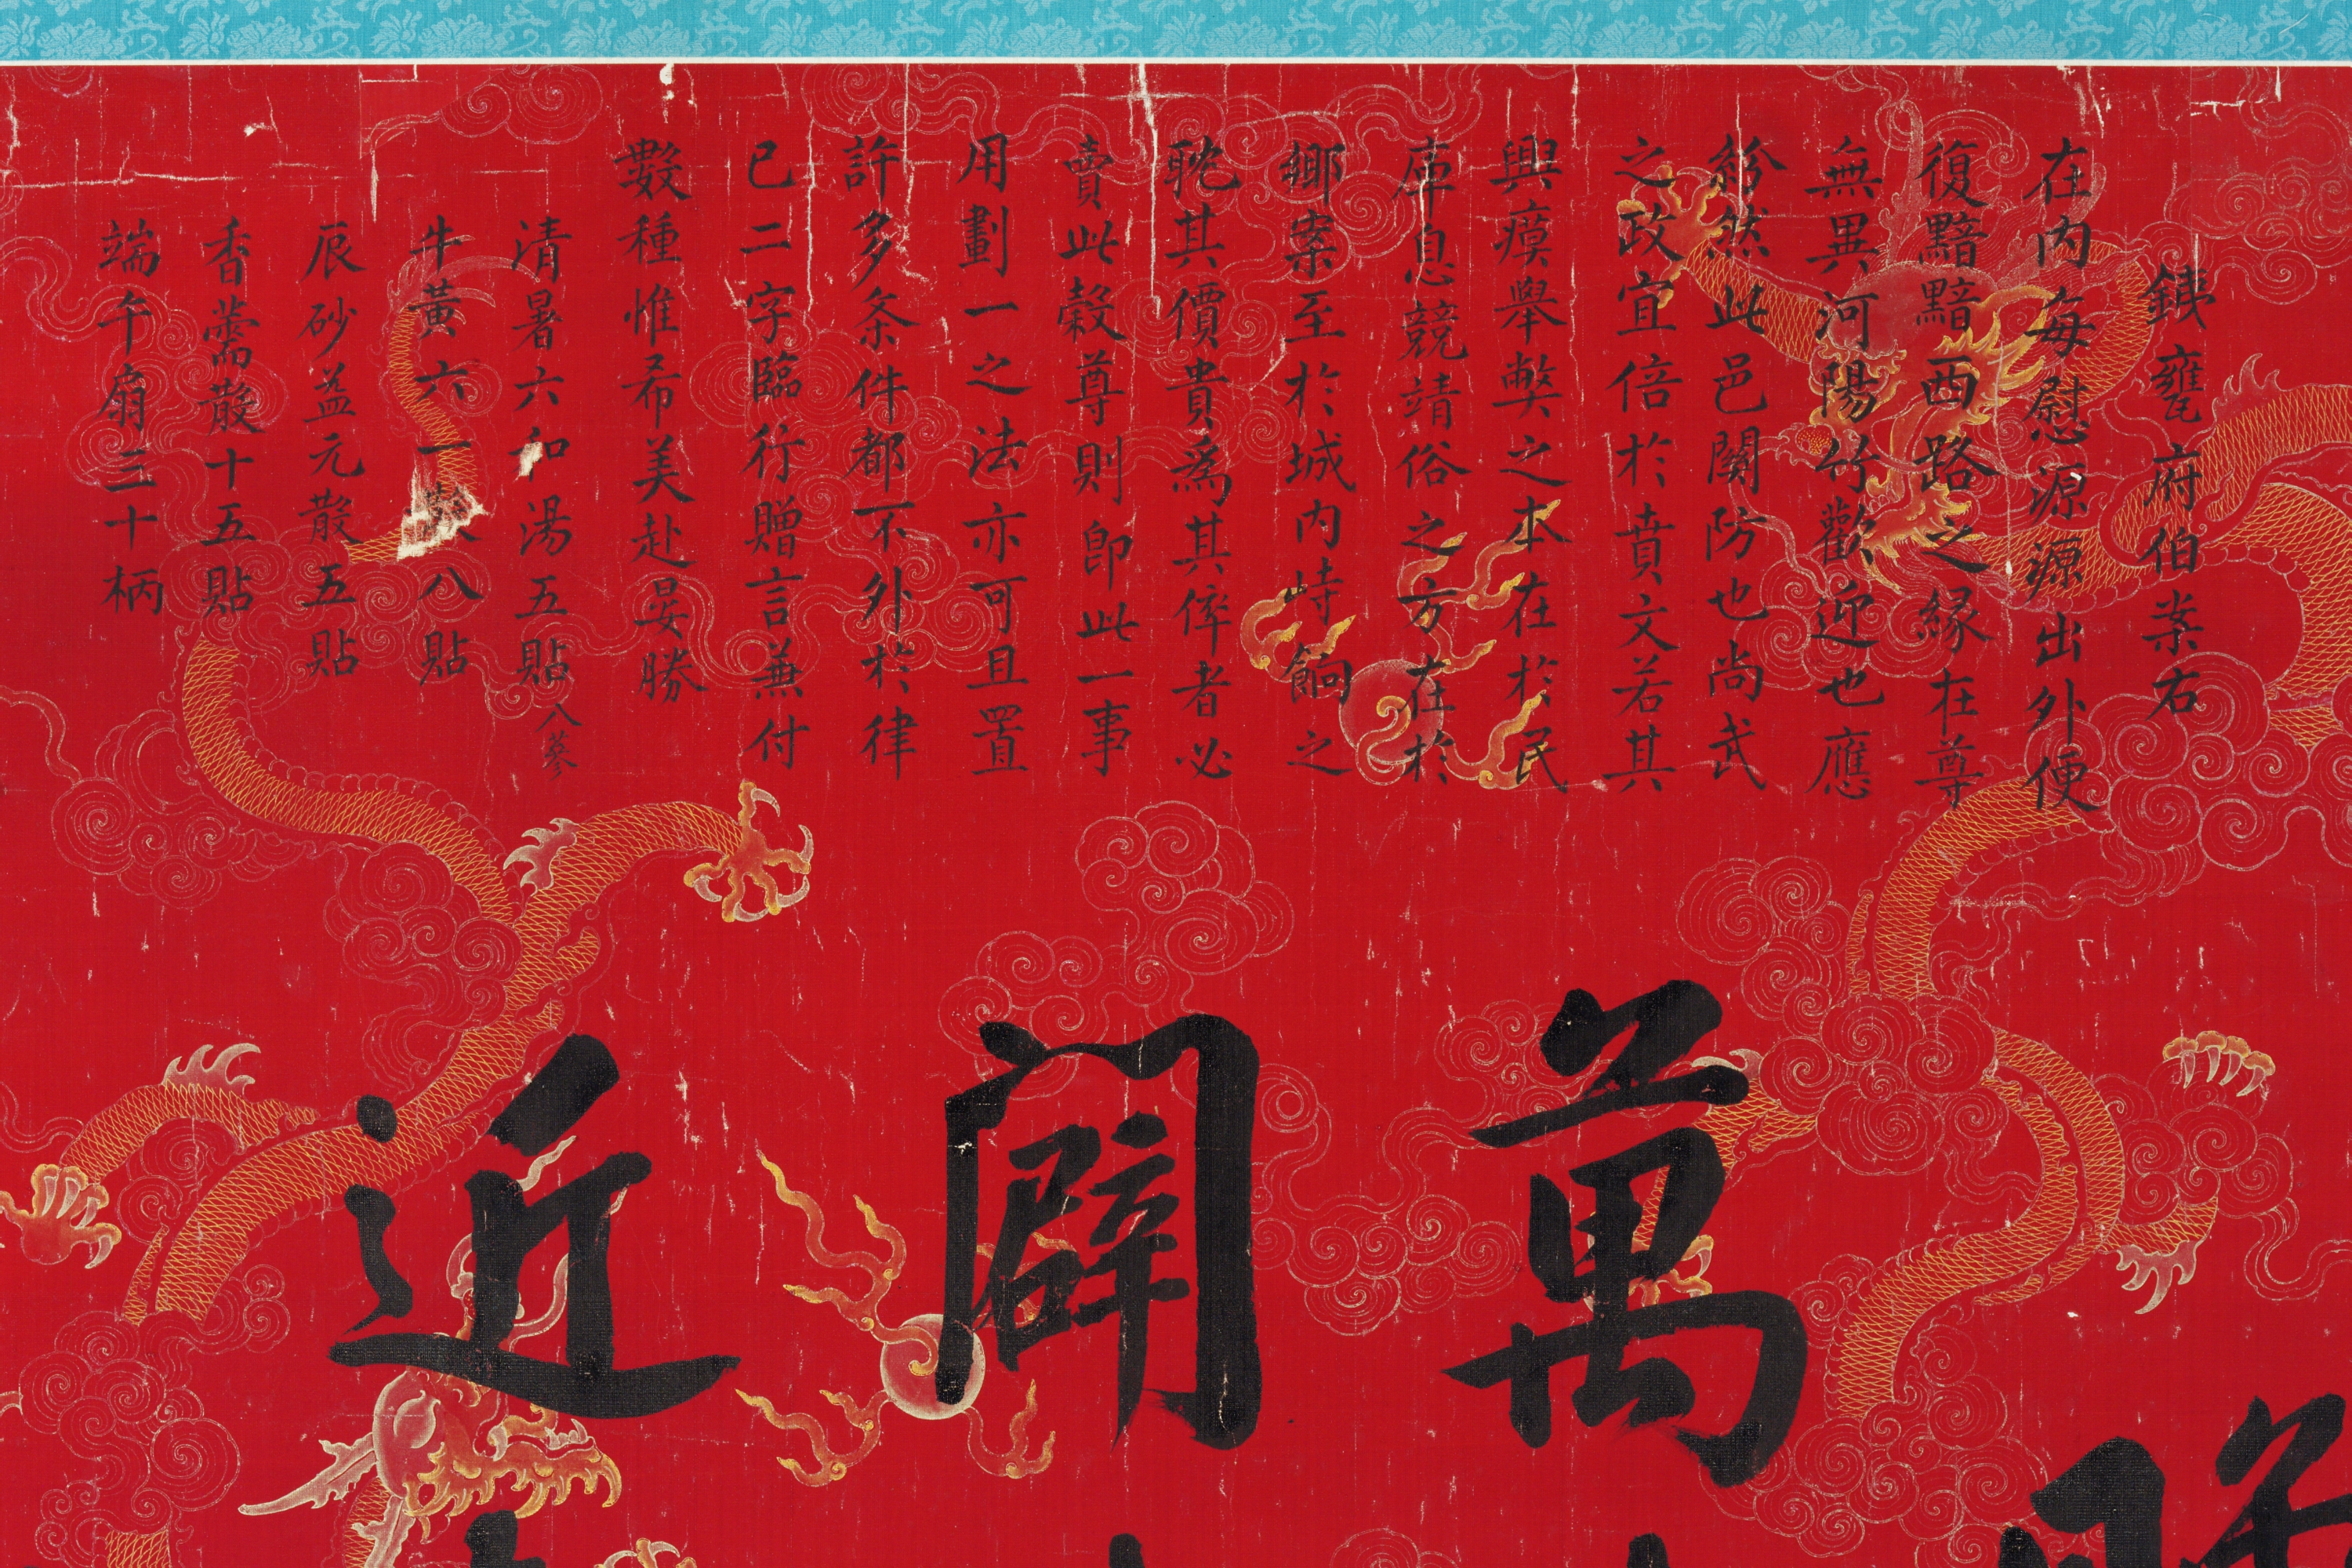 鐵甕府伯案右
在內每慰源源出外便
復黯黯西路之緣在尊
無異河陽竹歡迎也應
紛然此邑關防也尚武
之政宜倍於賁文若其
興瘼舉弊之本在於民
庫息競靖俗之方在於
鄉案至於城內峙餉之
耽其價貴爲其倅者必
賣此穀尊則卽此一事
用劃一之法亦可且置
許多条件都不外於律
已二字臨行贈言兼付
數種惟希美赴晏勝
清暑六和湯五貼 八蔘
牛黃六一散八貼
辰砂益元散五貼
香薷散十五貼
端午扇三十柄
萬
闢
近